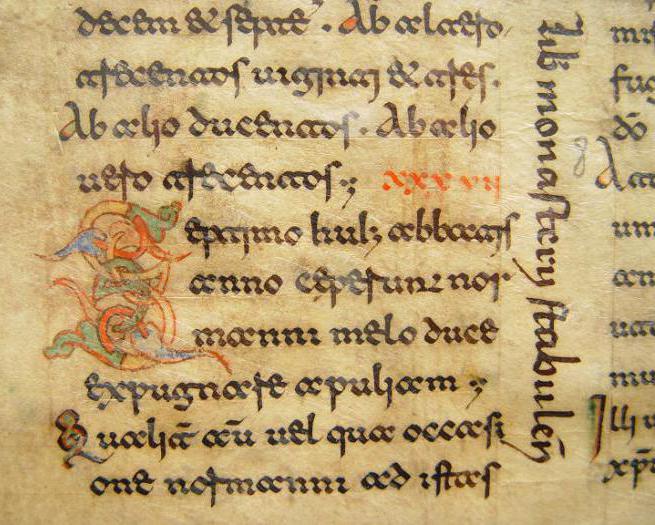 decem & septē . Ab altero
trecentos uiginti & tres.
Ab alio ducentos. Ab alio
uero trecentos; xxxvii
Septimo hui; abbatis
anno ceperunt nor
manni melo duce
expugnare apuliam;
Qualit̄ aū uel qua occasi
one normanni ad istas
Lib̄ monasterij stabulen̄
dō
um
Illi